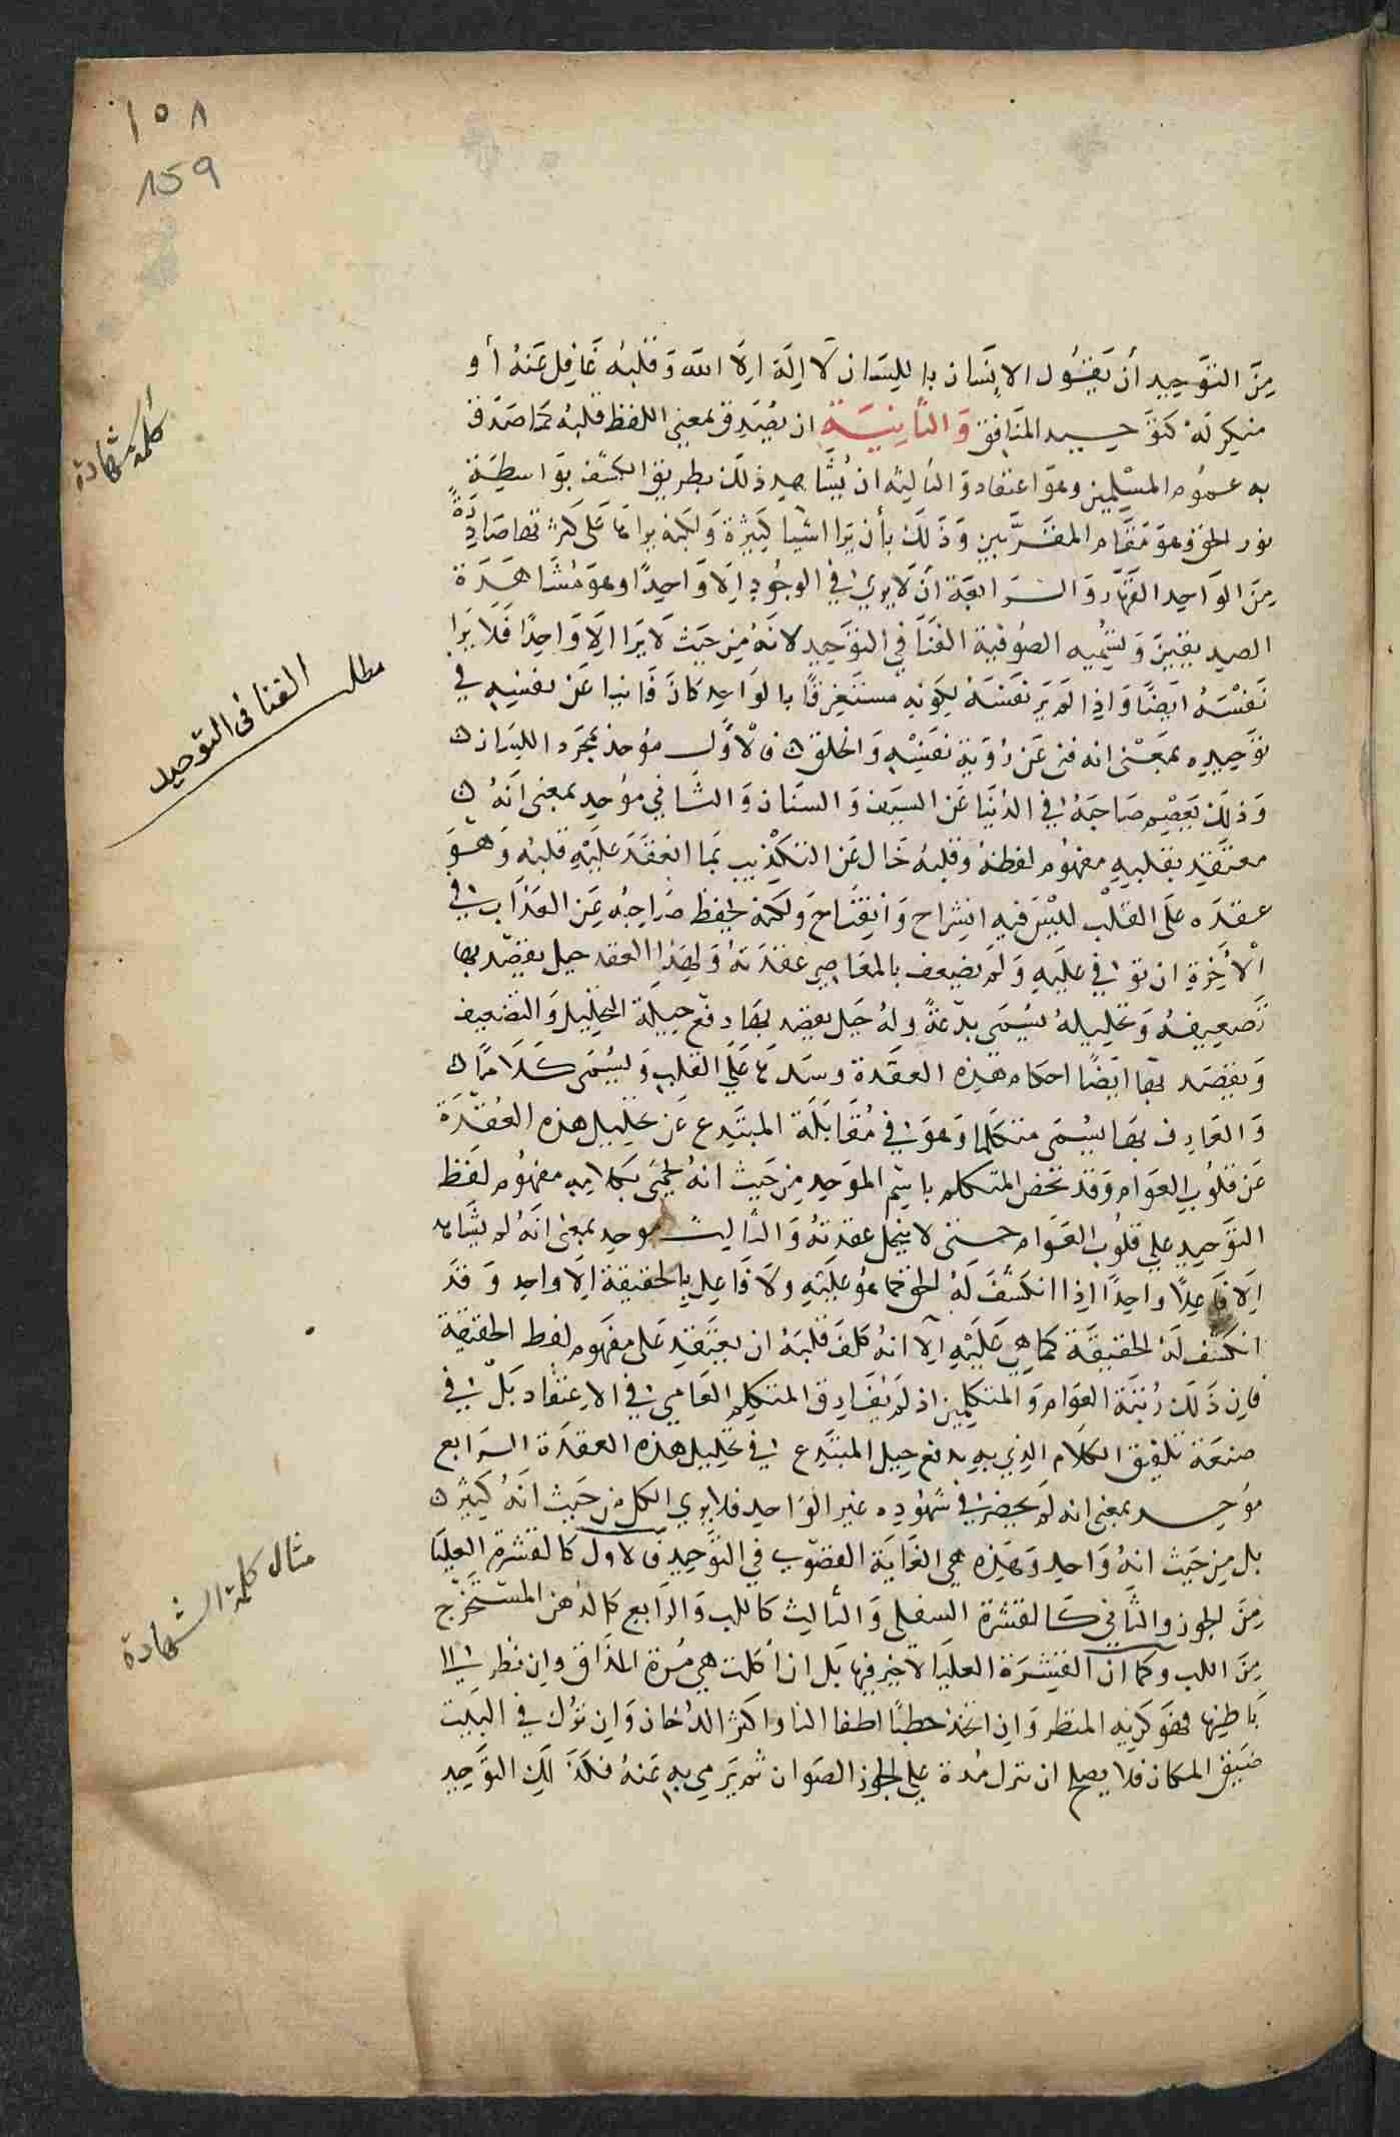 ١٥٨
159
كلمة شهادة
من التوحيد أن يقول الإنسان باللسان لا اله الا الله وقلبه غافل عنه أو
منكر له كتوحيد المنافق والثانية ان يصدق بمعنى اللفظ قلبه كما صدق
به عموم المسلمين وهو اعتقاد والثالثة ان يشاهد ذلك بطريق الكشف بواسطة
نور الحق وهو مقام المقربين وذلك بأن يرا اشيا كثيرة ولكنه يراها على كثرتها صادرة
من الواحد القهار والرابعة ان لا يري في الوجود الا واحدا وهو مشاهدة
الصديقين وتسميه الصوفية الفنا في التوحيد لانه من حيث لا يرا الا واحدا فلا يرا
مطلب الفنا فى التوحيد
نفسه ايضا واذا لم ير نفسه لكونه مستغرقا بالواحد كان فانيا عن نفسه في
توحيده بمعنى انه فنى عن رؤية نفسه والخلق فالأول موحد بمجرد اللسان
وذلك يعصم صاحبه في الدنيا عن السيف والسنان والثاني موحد بمعنى انه
معتقد بقلبه مفهوم لفظه وقلبه خال عن التكذيب بما انعقد عليه قلبه وهو
عقده على القلب لليس فيه انشراح وانفتاح ولكنه يحفظ صاحبه عن العذاب في
الأخرة ان توافي عليه ولم يضعف بالمعاصي عقدته ولهذا العقد حيل يقصد بها
تضعيفه وتحليله يسمى بدعة وله حيل يقصد بها دفع حيلة التحليل والتضعيف
ويقصد بها ايضا احكام هذه العقدة وسدها على القلب ويسمى كلاما
والعارف بها يسمى متكلما وهو في مقابلة المبتدع عن تحليل هذه العقدة
عن قلوب العوام وقد يخص المتكلم باسم الموحد من حيث انه يحمى بكلامه مفهوم لفظ
التوحيد على قلوب العوام حتى لا ينحل عقدته والثالث موحد بمعنى انه لم يشاهد
الا فاعلا واحدا اذا انكشف له الحق كما هو عليه ولا فاعل بالحقيقة الا واحد وقد
انكشف له الحقيقة كما هي عليه الا انه كلف قلبه ان يعتقد على مفهوم لفظ الحقيقة
فان ذلك رتبة العوام والمتكلمين اذ لم يفارق المتكلم العامي في الاعتقاد بل في
صنعة تلفيق الكلام الذي به يدفع حيل المبتدع في تحليل هذه العقدة الرابع
موحد بمعنى انه لم يحضر في شهوده غير الواحد فلا يري الكل من حيث انه كثير
بل من حيث انه واحد وهذه هي الغاية القصوى في التوحيد فالاول كالقشرة العليا
مثال كلمة الشهادة
من الجوز والثاني كالقشرة السفلى والثالث كاللب والرابع كالدهن المستخرج
من اللب وكما ان القشرة العليا لا خير فيها بل ان أكلت هي مرة المذاق وان نظر الى
باطنها فهو كريه المنظر وان اتخذ حطبا اطفا النار واكثر الدخان وان ترك في البيت
ضيق المكان فلا يصلح ان يترك مدة على الجوز الصوان ثم يرمي به عنه فكذلك التوحيد